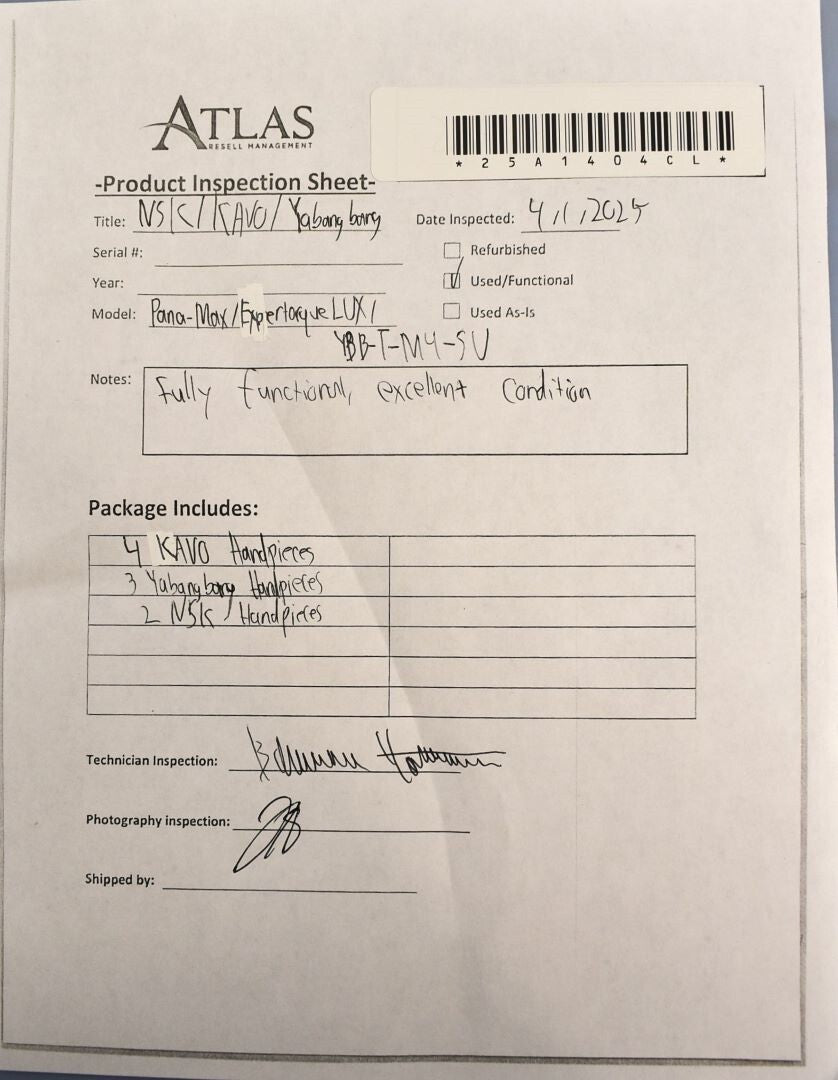 ATLAS
RESELL MANAGEMENT
*25A1404CL*
-Product Inspection Sheet-
Title: NSK/KAVO/Yabangbang Date Inspected: 4/1/2025
Serial #: Refurbished
Year: Used/Functional
Model: Pana-Max/Expertorque LUX/ Used As-Is
YBB-T-M4-SU
Notes: Fully functional, excellent condition
Package Includes:
4 KAVO Handpieces
3 Yabangbang Handpieces
2 NSK Handpieces
Technician Inspection:
Photography inspection:
Shipped by: